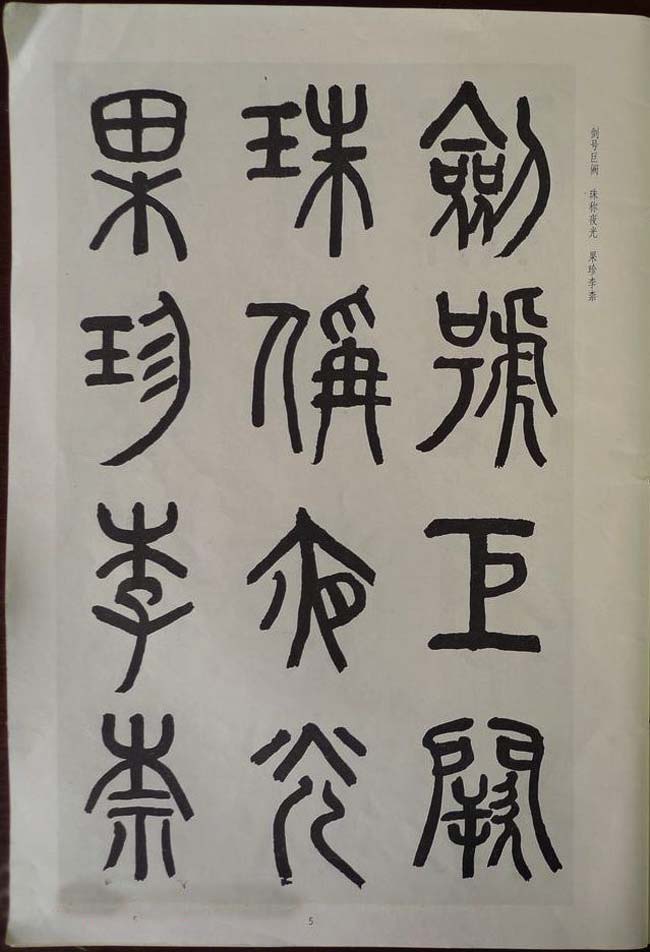 劍號巨闕
珠稱夜光
果珍李柰
剑号巨阙 珠称夜光 果珍李柰
5